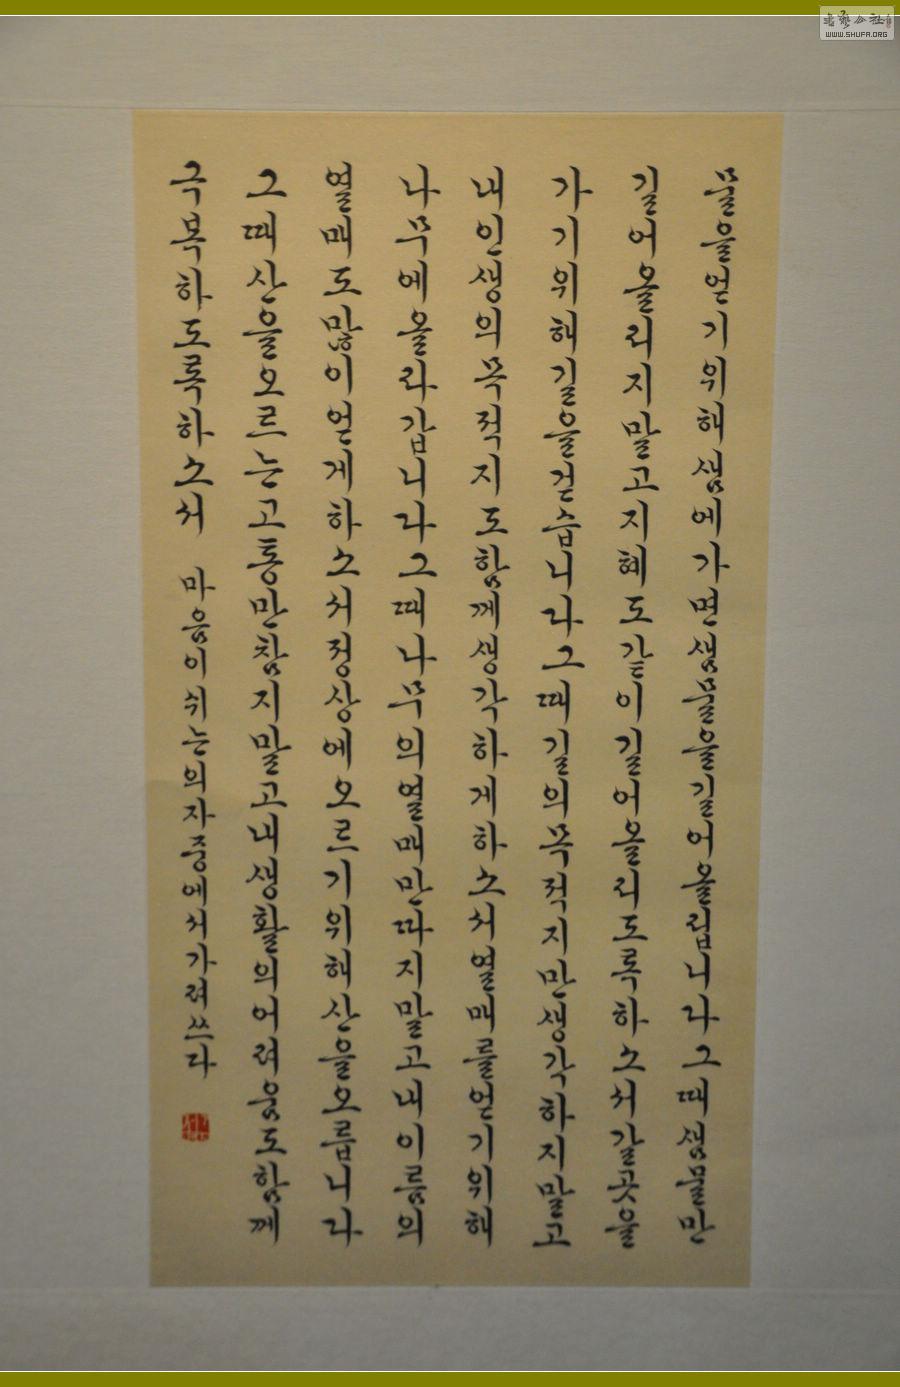 물을얻기위해샘에가면샘물을길어올립니다그때샘물만
길어올리지말고지혜도같이길어올리도록하소서갈곳을
가기위해길을걷습니다그때길의목적지만생각하지말고
내인생의목적지도함께생각하게하소서열매를얻기위해
나무에올라갑니다그때나무의열매만따지말고내이름의
열매도많이얻게하소서정상에오르기위해산을오릅니다
그때산을오르는고통만참지말고내생활의어려움도함께
극복하도록하소서 마음이쉬는의자중에서가려쓰다
WWW.SHUFA.ORG